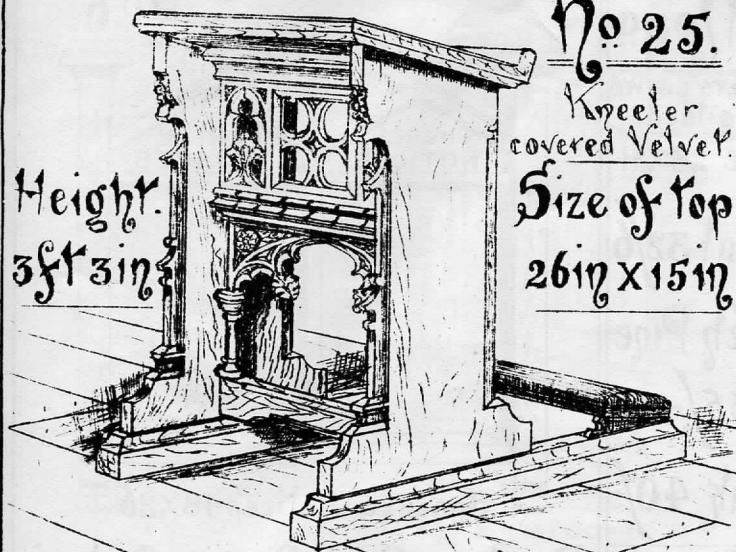 No. 25.
Kneeler
covered Velvet.
Size of top
26in x 15in
Height.
3ft 3in